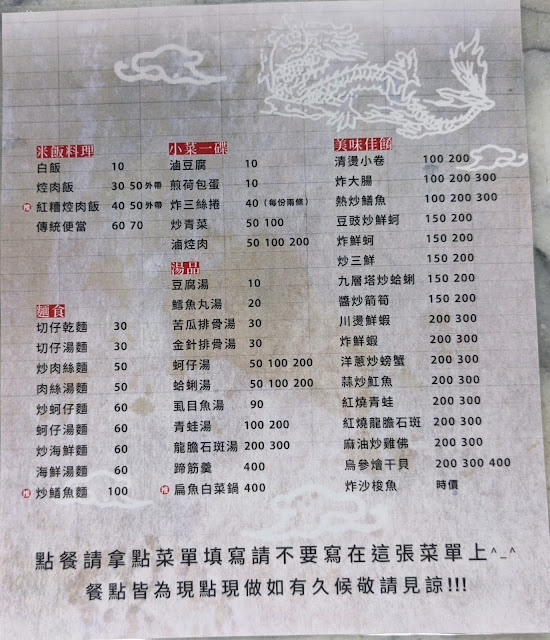 米飯料理
白飯 10
焢肉飯 30 50外帶
推 紅糟焢肉飯 40 50外帶
傳統便當 60 70
麵食
切仔乾麵 30
切仔湯麵 30
炒肉絲麵 50
肉絲湯麵 50
炒蚵仔麵 60
蚵仔湯麵 60
炒海鮮麵 60
海鮮湯麵 60
推 炒鱔魚麵 100
小菜一碟
滷豆腐 10
煎荷包蛋 10
炸三絲捲 40 (每份兩條)
炒青菜 50 100
滷焢肉 50 100 200
湯品
豆腐湯 10
鱈魚丸湯 20
苦瓜排骨湯 30
金針排骨湯 30
蚵仔湯 50 100 200
蛤蜊湯 50 100 200
虱目魚湯 90
青蛙湯 100 200
龍膽石斑湯 200 300
蹄筋羹 400
推 扁魚白菜鍋 400
美味佳餚
清燙小卷 100 200
炸大腸 100 200 300
熱炒鱔魚 100 200 300
豆豉炒鮮蚵 150 200
炸鮮蚵 150 200
炒三鮮 150 200
九層塔炒蛤蜊 150 200
醬炒箭筍 150 200
川燙鮮蝦 200 300
炸鮮蝦 200 300
洋蔥炒螃蟹 200 300
蒜炒魟魚 200 300
紅燒青蛙 200 300
紅燒龍膽石斑 200 300
麻油炒雞佛 200 300
烏參燴干貝 200 300 400
炸沙梭魚 時價
點餐請拿點菜單填寫請不要寫在這張菜單上^_^
餐點皆為現點現做如有久候敬請見諒!!!